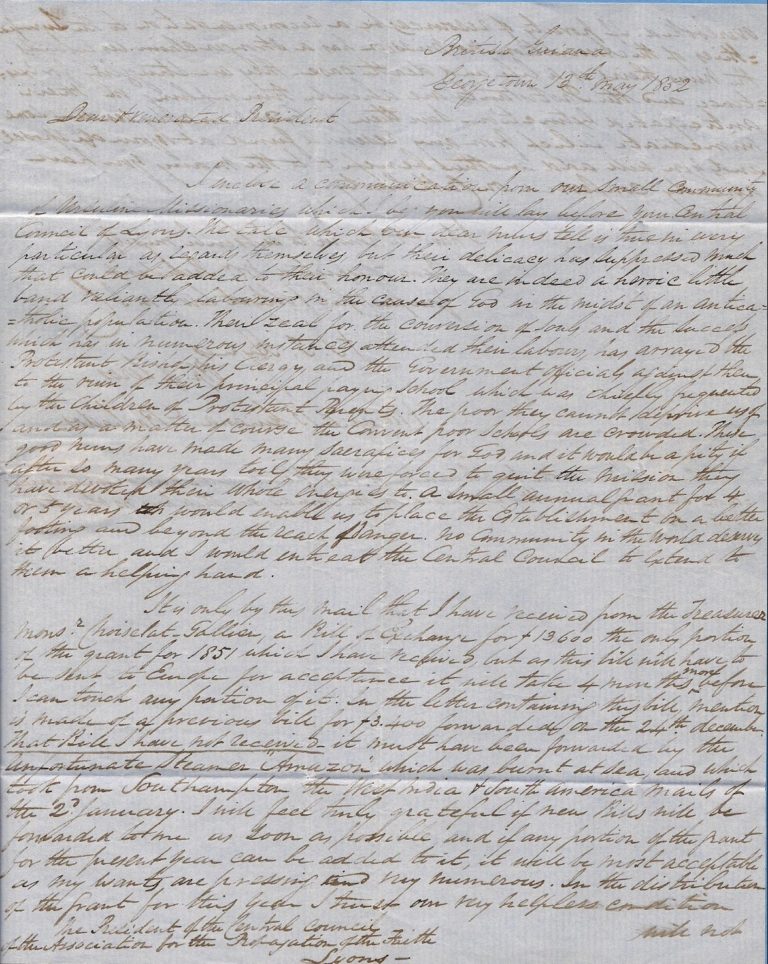 British Guiana
Georgetown 13th May 1852
Dear & venerated President
I enclose a communication from our small Community
of Ursuline Missionaries which I beg you will lay before your Central
Council of Lyons. The tale which our dear nuns tell is true in every
particular as regards themselves but their delicacy has suppressed much
that could be added to their honour. They are indeed a heroic little
band valiantly labouring in the cause of God in the midst of an antica=
=tholic population. Their zeal for the conversion of souls and the success
which has in numerous instances attended their labours, has arrayed the
Protestant Bishop, his Clergy, and the Government officials against them
to the ruin of their principal paying School which was chiefly frequented
by the Children of Protestant Parents. The poor they cannot deprive us of
and as a matter of course the Convent poor Schools are crowded. These
good nuns have made many sacrifices for God and it would be a pity if
after so many years toils they were forced to quit the mission they
have devoted their whole energies to. A small annual grant for 4
or 5 years would enable us to place the Establishment on a better
footing and beyond the reach danger. No community in the world deserves
it better and I would entreat the Central Council to extend to
them a helping hand.
It is only by this mail that I have received from the Treasurer
Monsr Choiselat-Gallien, a Bill of Exchange for 13600 the only portion
of the grant for 1851 which I have received, but as this bill will have to
be sent to Europe for acceptance it will take 4 months more before
I can touch any portion of it. In the letter containing this bill mention
is made of a previous bill for 3.400 forwarded on the 24th december.
That Bill I have not received it must have been forwarded by the
unfortunate Steamer "Amazon" which was burnt at sea, and which
took from Southampton the West India & South America mails of
the 2d January. I will feel truly grateful if new Bills will be
forwarded to me as soon as possible and if any portion of the grant
for the present year can be added to it, it will be most acceptable
as my wants are pressing and very numerous. In the distribution
of the grant for this year I trust our very helpless condition
will not
The President of the Central Council
of the Association for the Propagation of the Faith
Lyons -